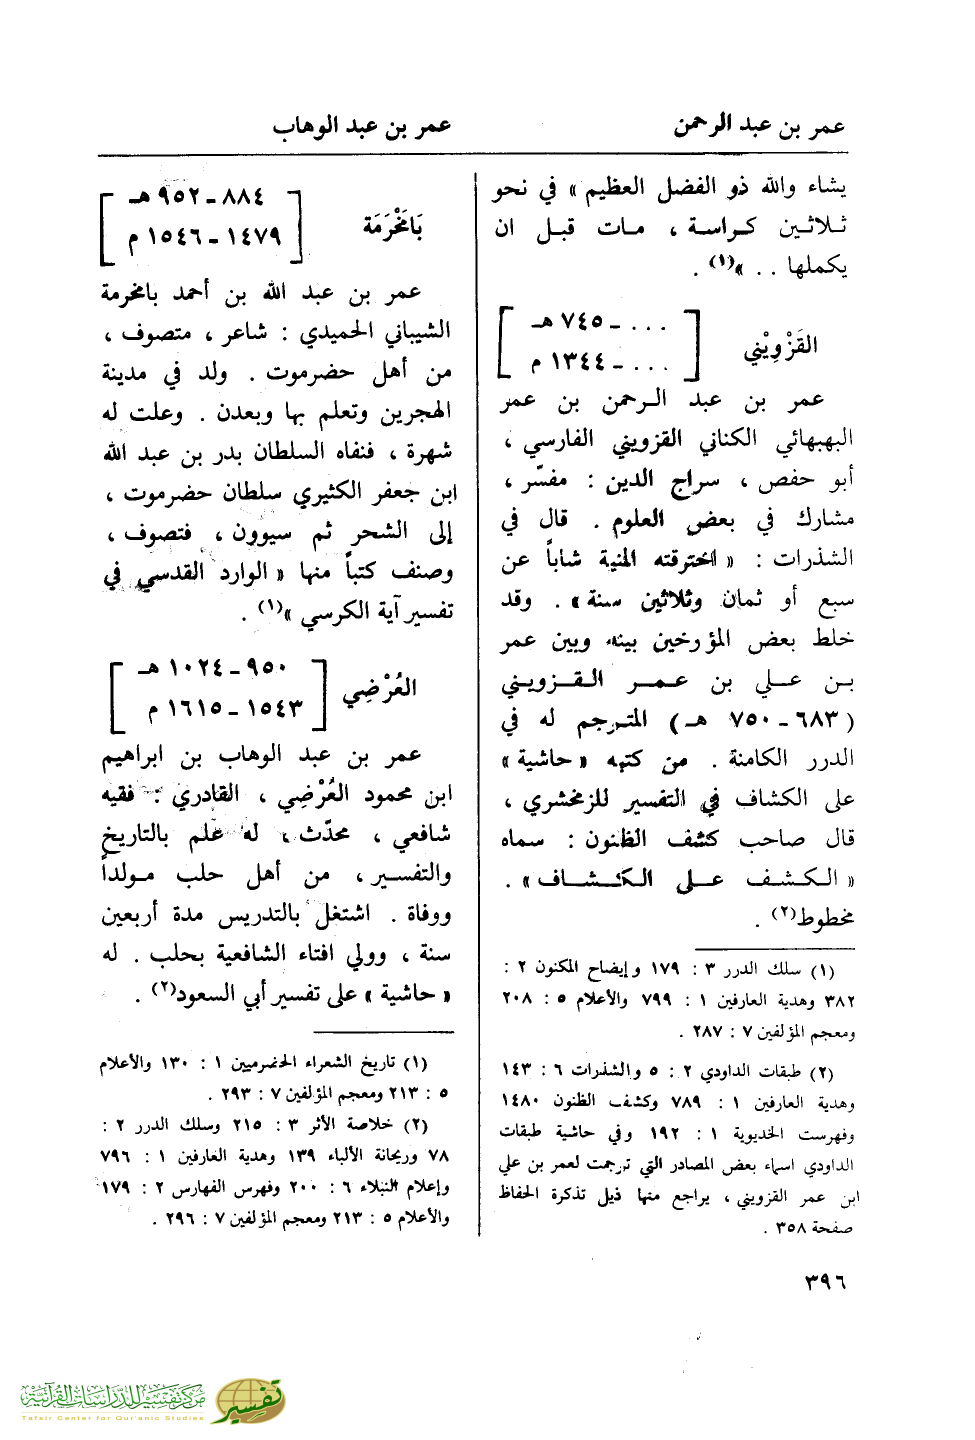 عمر بن عبد الرحمن
عمر بن عبد الوهاب
يشاء والله ذو الفضل العظيم » في نحو
ثلاثين كراسة ، مات قبل ان
يكملها . . »(١) .
القَزْوِيْني
[ . . . ـ ٧٤٥ هـ
. . . ـ ١٣٤٤ م ]
عمر بن عبد الرحمن بن عمر
البهبهائي الكناني القزويني الفارسي ،
أبو حفص ، سراج الدين : مفسّر ،
مشارك في بعض العلوم . قال في
الشذرات : « اخترقته المنية شاباً عن
سبع أو ثمان وثلاثين سنة » . وقد
خلط بعض المؤرخين بينه وبين عمر
بن علي بن عمر القزويني
( ٦٨٣ ـ ٧٥٠ هـ ) المترجم له في
الدرر الكامنة . من كتبه « حاشية »
على الكشاف في التفسير للزمخشري ،
قال صاحب كشف الظنون : سماه
« الكشف على الكشاف » .
مخطوط(٢) .
(١) سلك الدرر ٣ : ١٧٩ وإيضاح المكنون ٢ :
٣٨٢ وهدية العارفين ١ : ٧٩٩ والأعلام ٥ : ٢٠٨
ومعجم المؤلفين ٧ : ٢٨٧ .
(٢) طبقات الداودي ٢ : ٥ والشذرات ٦ : ١٤٣
وهدية العارفين ١ : ٧٨٩ وكشف الظنون ١٤٨٠
وفهرست الخديوية ١ : ١٩٢ وفي حاشية طبقات
الداودي اسماء بعض المصادر التي ترجمت لعمر بن علي
ابن عمر القزويني ، يراجع منها ذيل تذكرة الحفاظ
صفحة ٣٥٨ .
بَامَخْرَمَة
[ ٨٨٤ ـ ٩٥٢ هـ
١٤٧٩ ـ ١٥٤٦ م ]
عمر بن عبد الله بن أحمد بامخرمة
الشيباني الحميدي : شاعر ، متصوف ،
من أهل حضرموت . ولد في مدينة
الهجرين وتعلم بها وبعدن . وعلت له
شهرة ، فنفاه السلطان بدر بن عبد الله
ابن جعفر الكثيري سلطان حضرموت ،
إلى الشحر ثم سيوون ، فتصوف ،
وصنف كتباً منها « الوارد القدسي في
تفسير آية الكرسي »(١) .
العُرْضِي
[ ٩٥٠ ـ ١٠٢٤ هـ
١٥٤٣ ـ ١٦١٥ م ]
عمر بن عبد الوهاب بن ابراهيم
ابن محمود العُرْضِي ، القادري : فقيه
شافعي ، محدّث ، له علم بالتاريخ
والتفسير ، من أهل حلب مولداً
ووفاة . اشتغل بالتدريس مدة أربعين
سنة ، وولي افتاء الشافعية بحلب . له
« حاشية » على تفسير أبي السعود(٢) .
(١) تاريخ الشعراء الحضرميين ١ : ١٣٠ والأعلام
٥ : ٢١٣ ومعجم المؤلفين ٧ : ٢٩٣ .
(٢) خلاصة الأثر ٣ : ٢١٥ وسلك الدرر ٢ :
٧٨ وريحانة الألباء ١٣٩ وهدية العارفين ١ : ٧٩٦
وإعلام النبلاء ٦ : ٢٠٠ وفهرس الفهارس ٢ : ١٧٩
والأعلام ٥ : ٢١٣ ومعجم المؤلفين ٧ : ٢٩٦ .
٣٩٦
مركز تفسير للدراسات القرآنية
Tafsir Center for Qur'anic Studies
تفسير